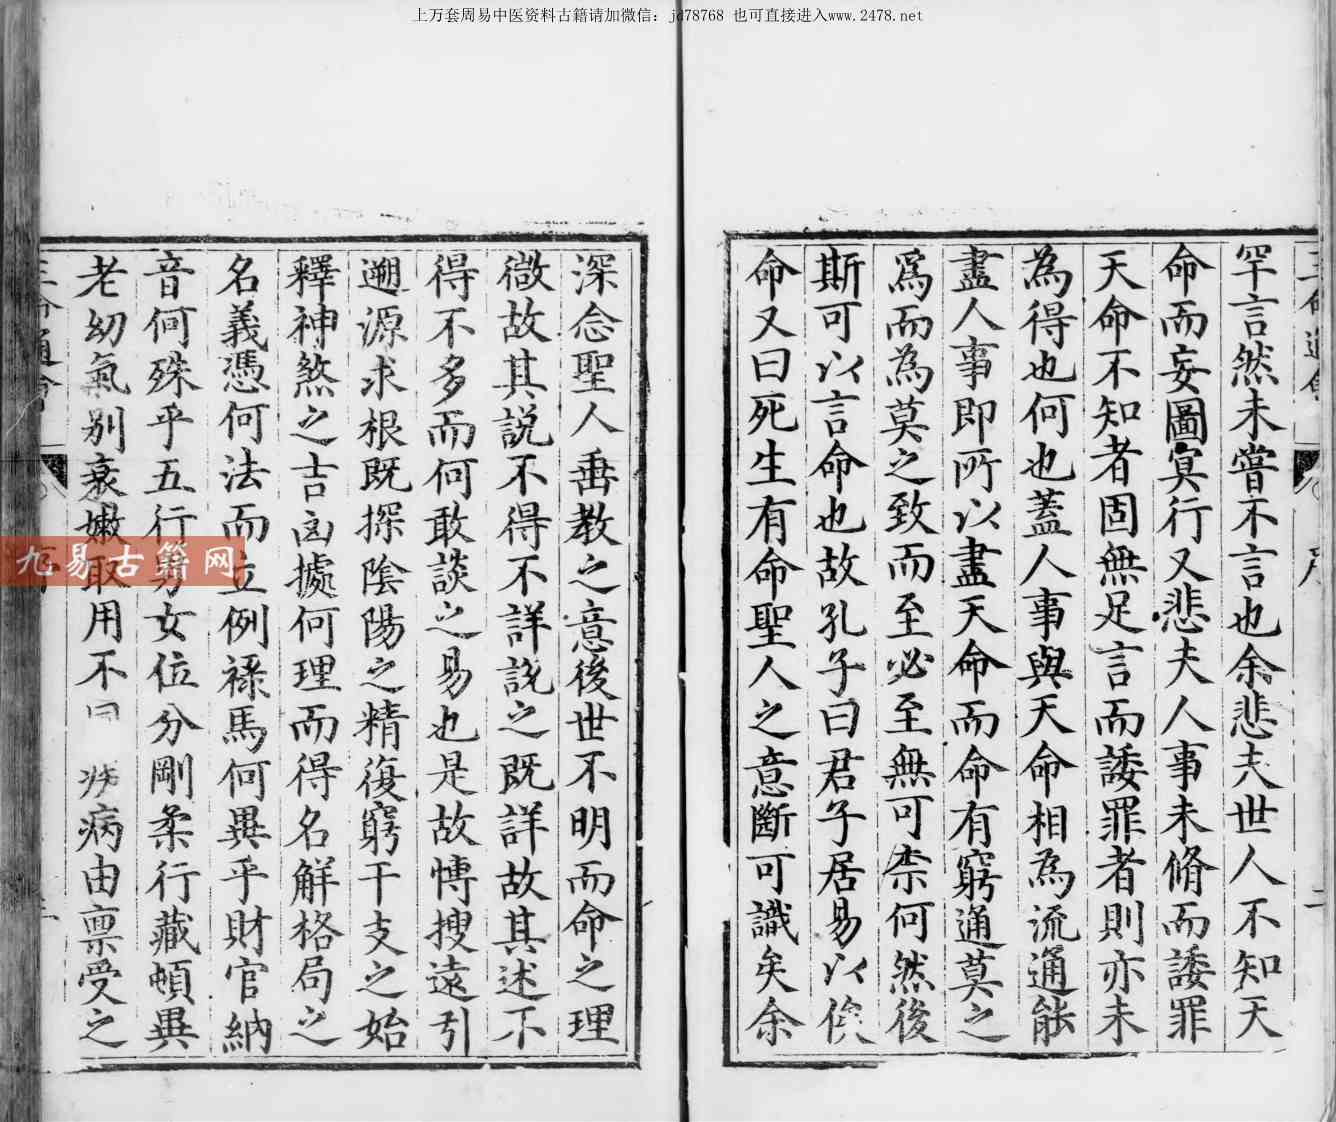 上万套周易中医资料古籍请加微信：jd78768 也可直接进入www.2478.net
罕言然未嘗不言也余悲夫世人不知天
命而妄圖冥行又悲夫人事未脩而諉罪
天命不知者固無足言而諉罪者則亦未
為得也何也蓋人事與天命相為流通能
盡人事即所以盡天命而命有窮通莫之
爲而為莫之致而至必至無可柰何然後
斯可以言命也故孔子曰君子居易以俟
命又曰死生有命聖人之意斷可識矣余
深念聖人垂教之意後世不明而命之理
微故其説不得不詳説之既詳故其述不
得不多而何敢談之易也是故愽搜遠引
遡源求根既探陰陽之精復窮干支之始
釋神煞之吉凶據何理而得名解格局之
名義憑何法而立例祿馬何異乎財官納
音何殊乎五行男女位分剛柔行藏頓異
老幼氣别衰嫩取用不同疾病由禀受之
三命通會
九易古籍网